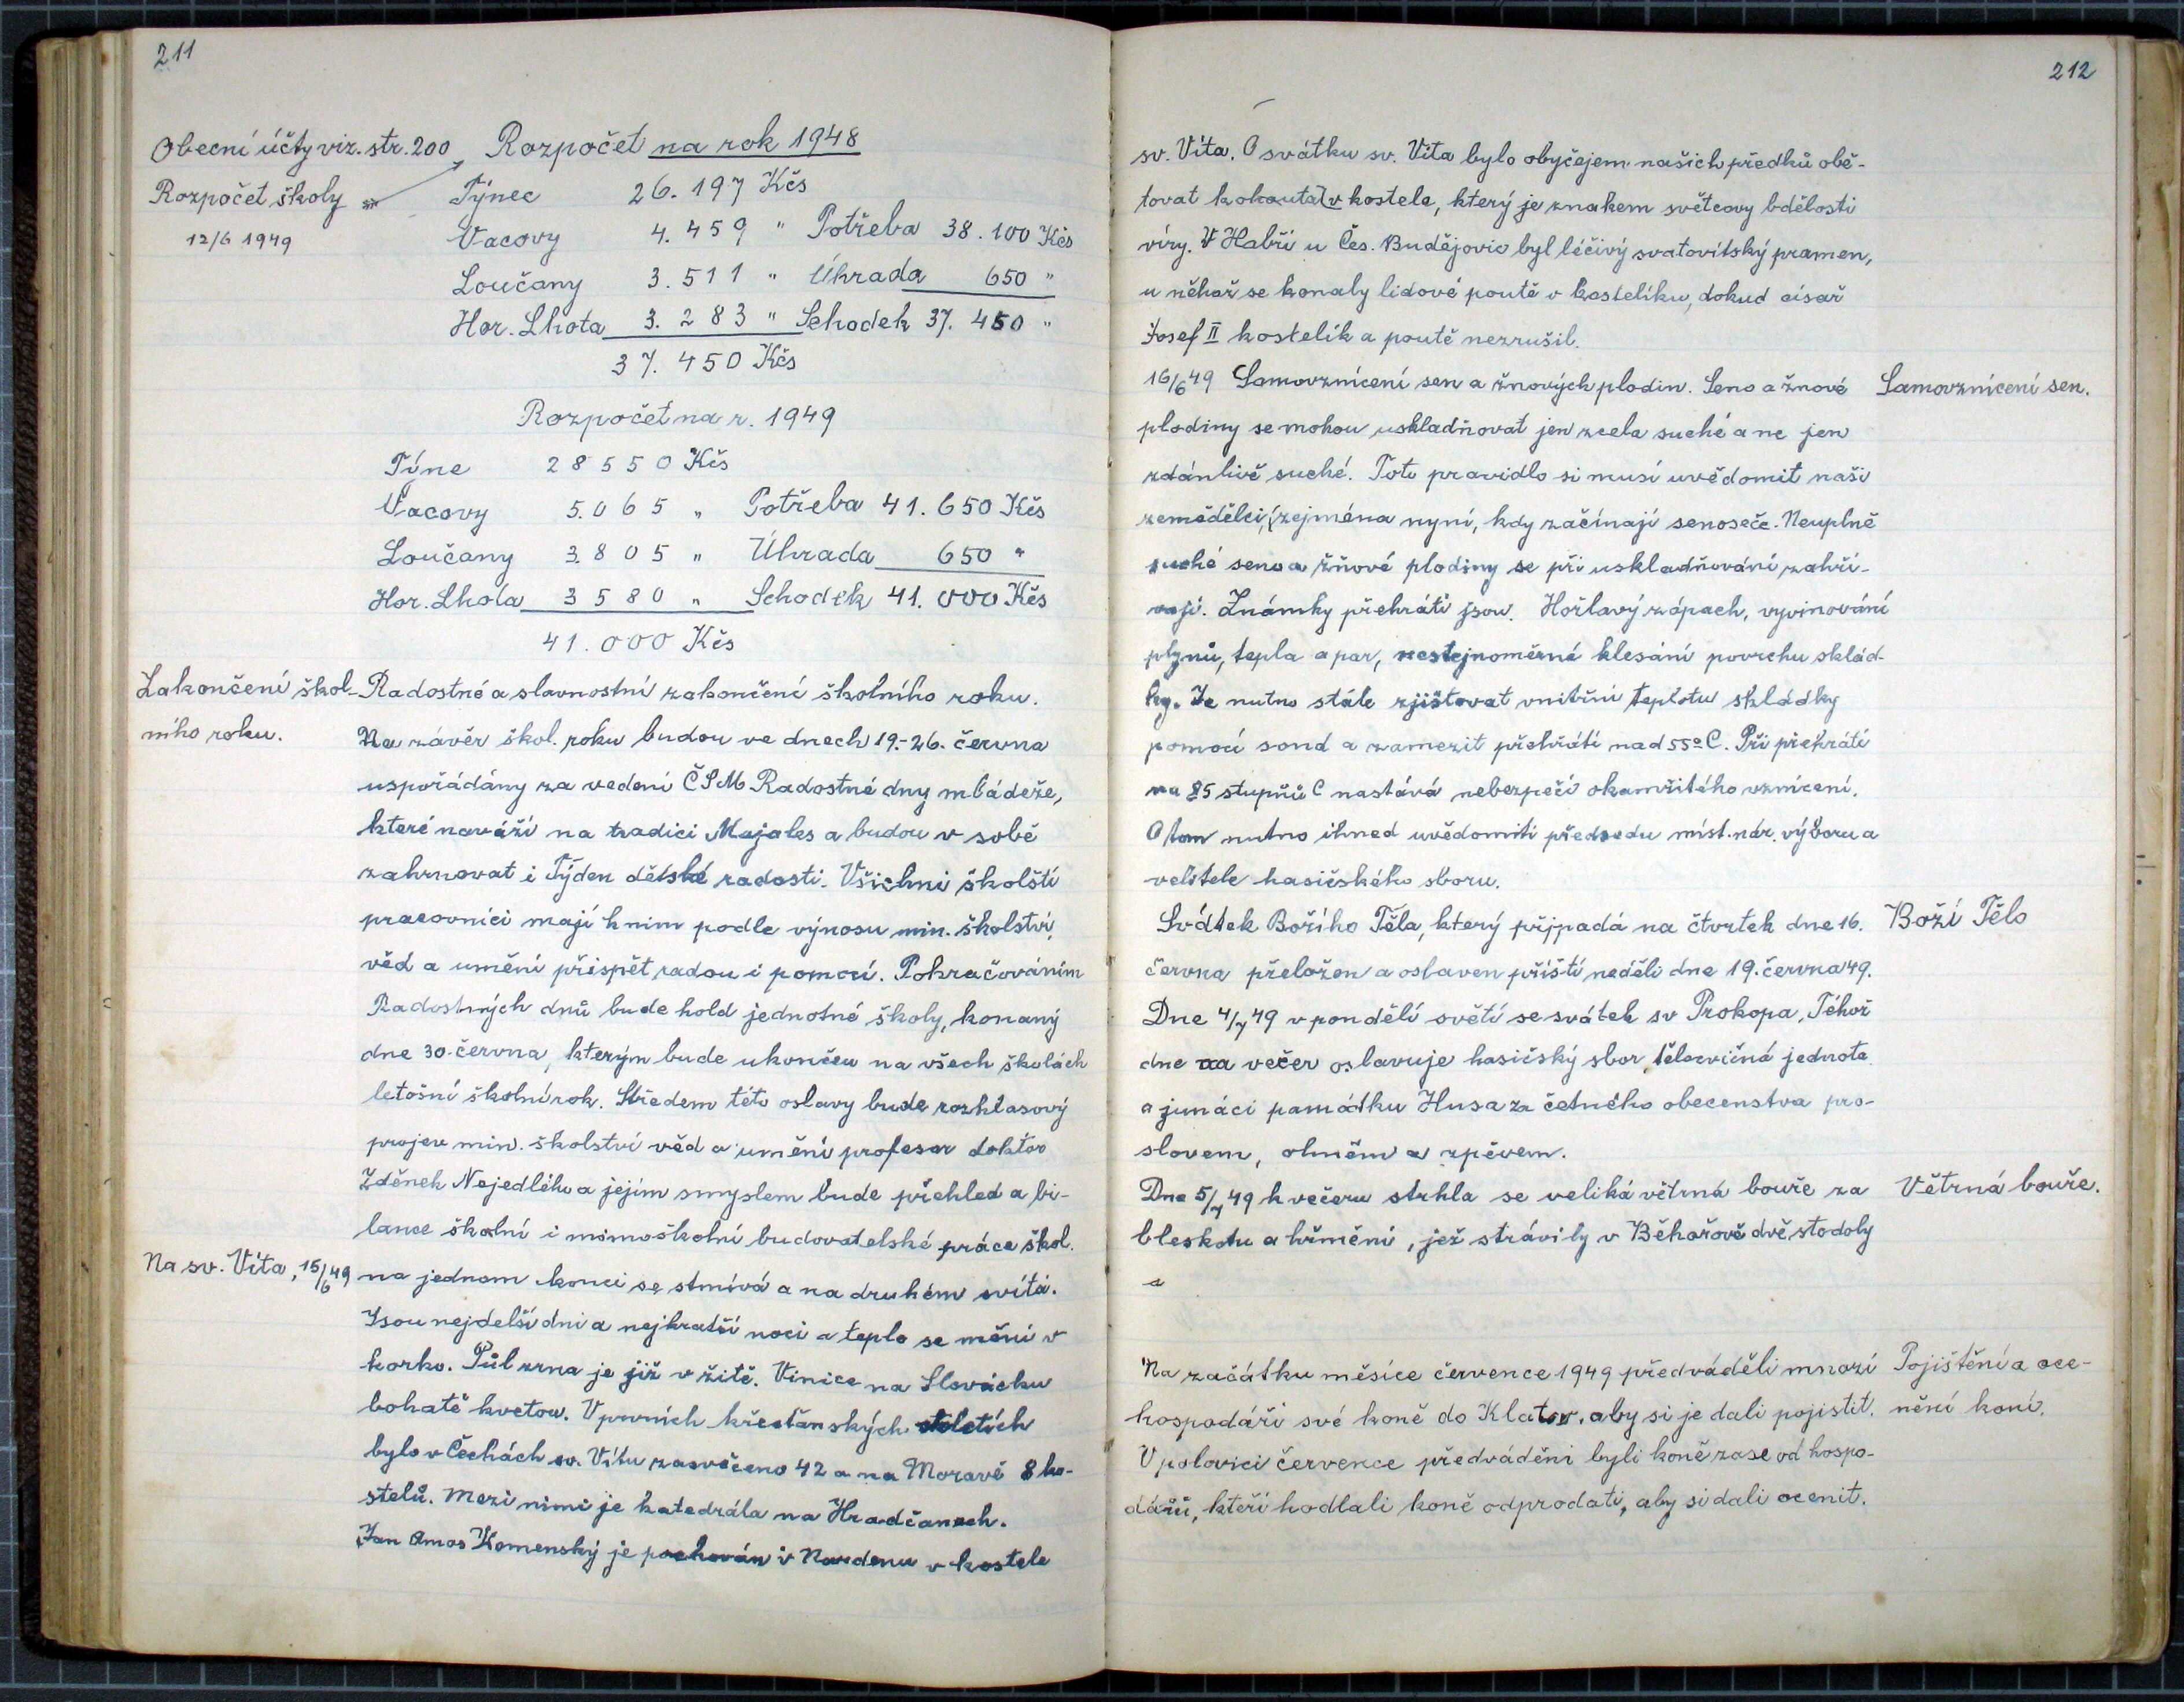 211
Obecní účty viz. str. 200 Rozpočet na rok 1948
Rozpočet školy Týnec 26.197 Kčs
12/6 1949 Vacovy 4.459 " Potřeba 38.100 Kčs
Loučany 3.511 " Úhrada 650 "
Hor. Lhota 3.283 " Schodek 37.450 "
37.450 Kčs
Rozpočet na r. 1949
Týne 28550 Kčs
Vacovy 5.065 " Potřeba 41.650 Kčs
Loučany 3.805 " Úhrada 650 "
Hor. Lhota 3580 " Schodek 41.000 Kčs
41.000 Kčs
Zakončení škol- Radostné a slavnostní zakončení školního roku.
ního roku. Na závěr škol. roku budou ve dnech 19.-26. června
uspořádány za vedení ČSM Radostné dny mládeže,
které naváží na tradici Majales a budou v sobě
zahrnovat i Týden dětské radosti. Všichni školští
pracovníci mají k nim podle výnosu min. školství,
věd a umění přispět radou i pomocí. Pokračováním
Radostných dnů bude hold jednotné školy, konaný
dne 30. června, kterým bude ukončen na všech školách
letošní školní rok. Středem této oslavy bude rozhlasový
projev min. školství věd a umění profesor doktor
Zděnek Nejedlého a jejím smyslem bude přehled a bi-
lance školní i mimoškolní budovatelské práce škol.
Na sv. Víta, 15/6 49 na jednom konci se stmívá a na druhém svítá.
Jsou nejdelší dni a nejkratší noci a teplo se mění v
horko. Půl zrna je již v žitě. Vinice na Slovácku
bohatě kvetou. V prvních křesťanských stoletích
bylo v Čechách sv. Vítu zasvěceno 42 a na Moravě 8 ko-
stelů. Mezi nimi je katedrála na Hradčanech.
Jan Amos Komenský je pochován v Nardenu v kostele
212
sv. Víta. O svátku sv. Víta bylo obyčejem našich předků obě-
tovat kohouta v kostele, který je znakem světcovy bdělosti
víry. V Habří u Čes. Budějovic byl léčivý svatovítský pramen,
u něhož se konaly lidové poutě v kostelíku, dokud císař
Josef II kostelík a poutě nezrušil.
16/6 49 Samovznícení sen a žnových plodin. Seno a žnové Samovznícení sen.
plodiny se mohou uskladňovat jen zcela suché a ne jen
zdánlivě suché. Toto pravidlo si musí uvědomit naši
zemědělci, zejména nyní, kdy začínají senoseče. Neuplně
suché seno a žňové plodiny se při uskladňování zahří-
vají. Známky přehráti jsou. Hořlavý zápach, vyvinování
plynů, tepla a par, nestejnoměrné klesání povrchu sklád-
ky. Je nutno stále zjišťovat vnitřní teplotu skládky
pomocí sond a zamezit přehráti nad 55° C. Při přehráti
na 85 stupňů C nastává nebezpečí okamžitého vznícení.
O tom nutno ihned uvědomiti předsedu míst. nár. výboru a
velitele hasičského sboru.
Svátek Božího Těla, který připadá na čtvrtek dne 16. Boží Tělo
června přeložen a oslaven příští neděli dne 19. června 49.
Dne 4/7 49 v pondělí světí se svátek sv Prokopa, Téhož
dne na večer oslavuje hasičský sbor, tělocvičná jednota
a junáci památku Husa za četného obecenstva pro-
slovem, ohněm a zpěvem.
Dne 5/7 49 k večeru strhla se veliká větrná bouře za Větrná bouře.
bleskotu a hřmění, jež strávily v Běhařově dvě stodoly
a
Na začátku měsíce července 1949 předváděli mnozí Pojištění a oce-
hospodáři své koně do Klatov, aby si je dali pojistit. nění koní.
V polovici července předváděni byli koně zase od hospo-
dářů, kteří hodlali koně odprodati, aby si dali ocenit.